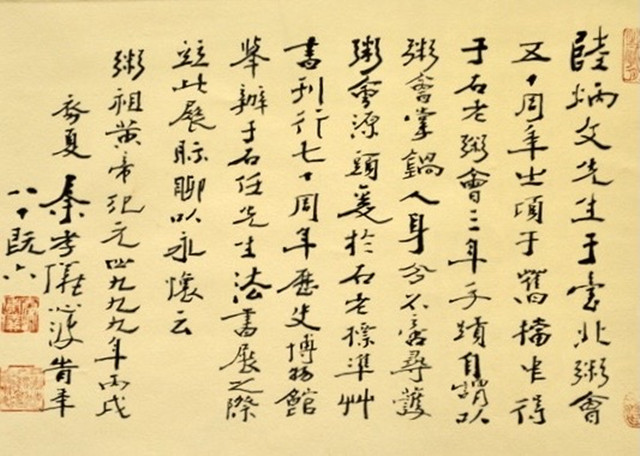 陸炳文先生于臺北粥會
五十周年㞢頃于舊檔中得
于右老粥會三年手蹟自謂以
粥會掌鍋人身分不啻尋獲
粥會源頭爰於右老標準艸
書刊行七十周年歷史博物館
舉辦于右任先生法書展之際
竝此展眎聊以永懷云
粥祖黃帝紀元四九九九年丙戌
夏 秦孝儀心波旹年
八十既六